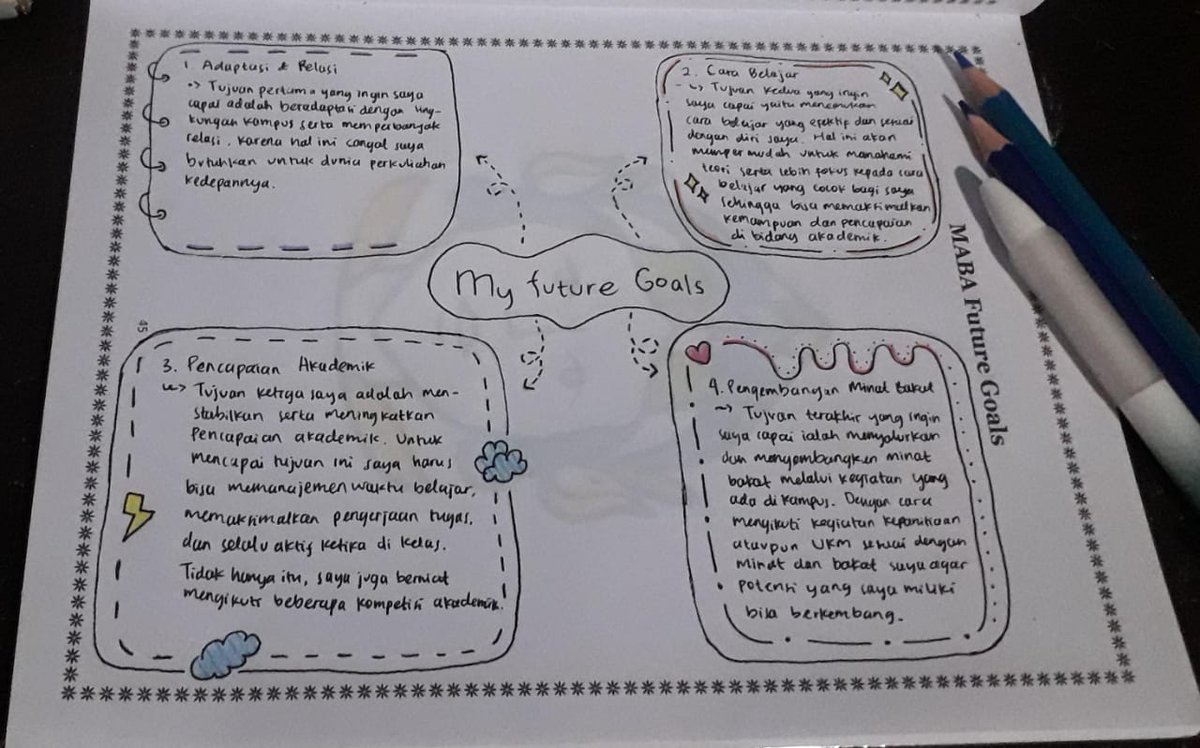 1. Adaptasi & Relasi
↳ Tujuan pertama yang ingin saya
capai adalah beradaptasi dengan ling-
kungan kampus serta memperbanyak
relasi, karena hal ini sangat saya
butuhkan untuk dunia perkuliahan
kedepannya.
2. Cara Belajar
↳ Tujuan kedua yang ingin
saya capai yaitu menemukan
cara belajar yang efektif dan sesuai
dengan diri saya. Hal ini akan
mempermudah untuk memahami
teori serta lebih fokus kepada cara
belajar yang cocok bagi saya
sehingga bisa memaksimalkan
kemampuan dan pencapaian
di bidang akademik.
My future Goals
3. Pencapaian Akademik
↳ Tujuan ketiga saya adalah men-
stabilkan serta meningkatkan
pencapaian akademik. Untuk
mencapai tujuan ini saya harus
bisa memanajemen waktu belajar,
memaksimalkan pengerjaan tugas,
dan selalu aktif ketika di kelas.
Tidak hanya itu, saya juga berniat
mengikuti beberapa kompetisi akademik.
4. Pengembangan Minat Bakat
↳ Tujuan terakhir yang ingin
saya capai ialah menyalurkan
dan mengembangkan minat
bakat melalui kegiatan yang
ada di kampus. Dengan cara
mengikuti kegiatan kepanitiaan
ataupun UKM sesuai dengan
minat dan bakat saya agar
potensi yang saya miliki
bisa berkembang.
MABA Future Goals
45